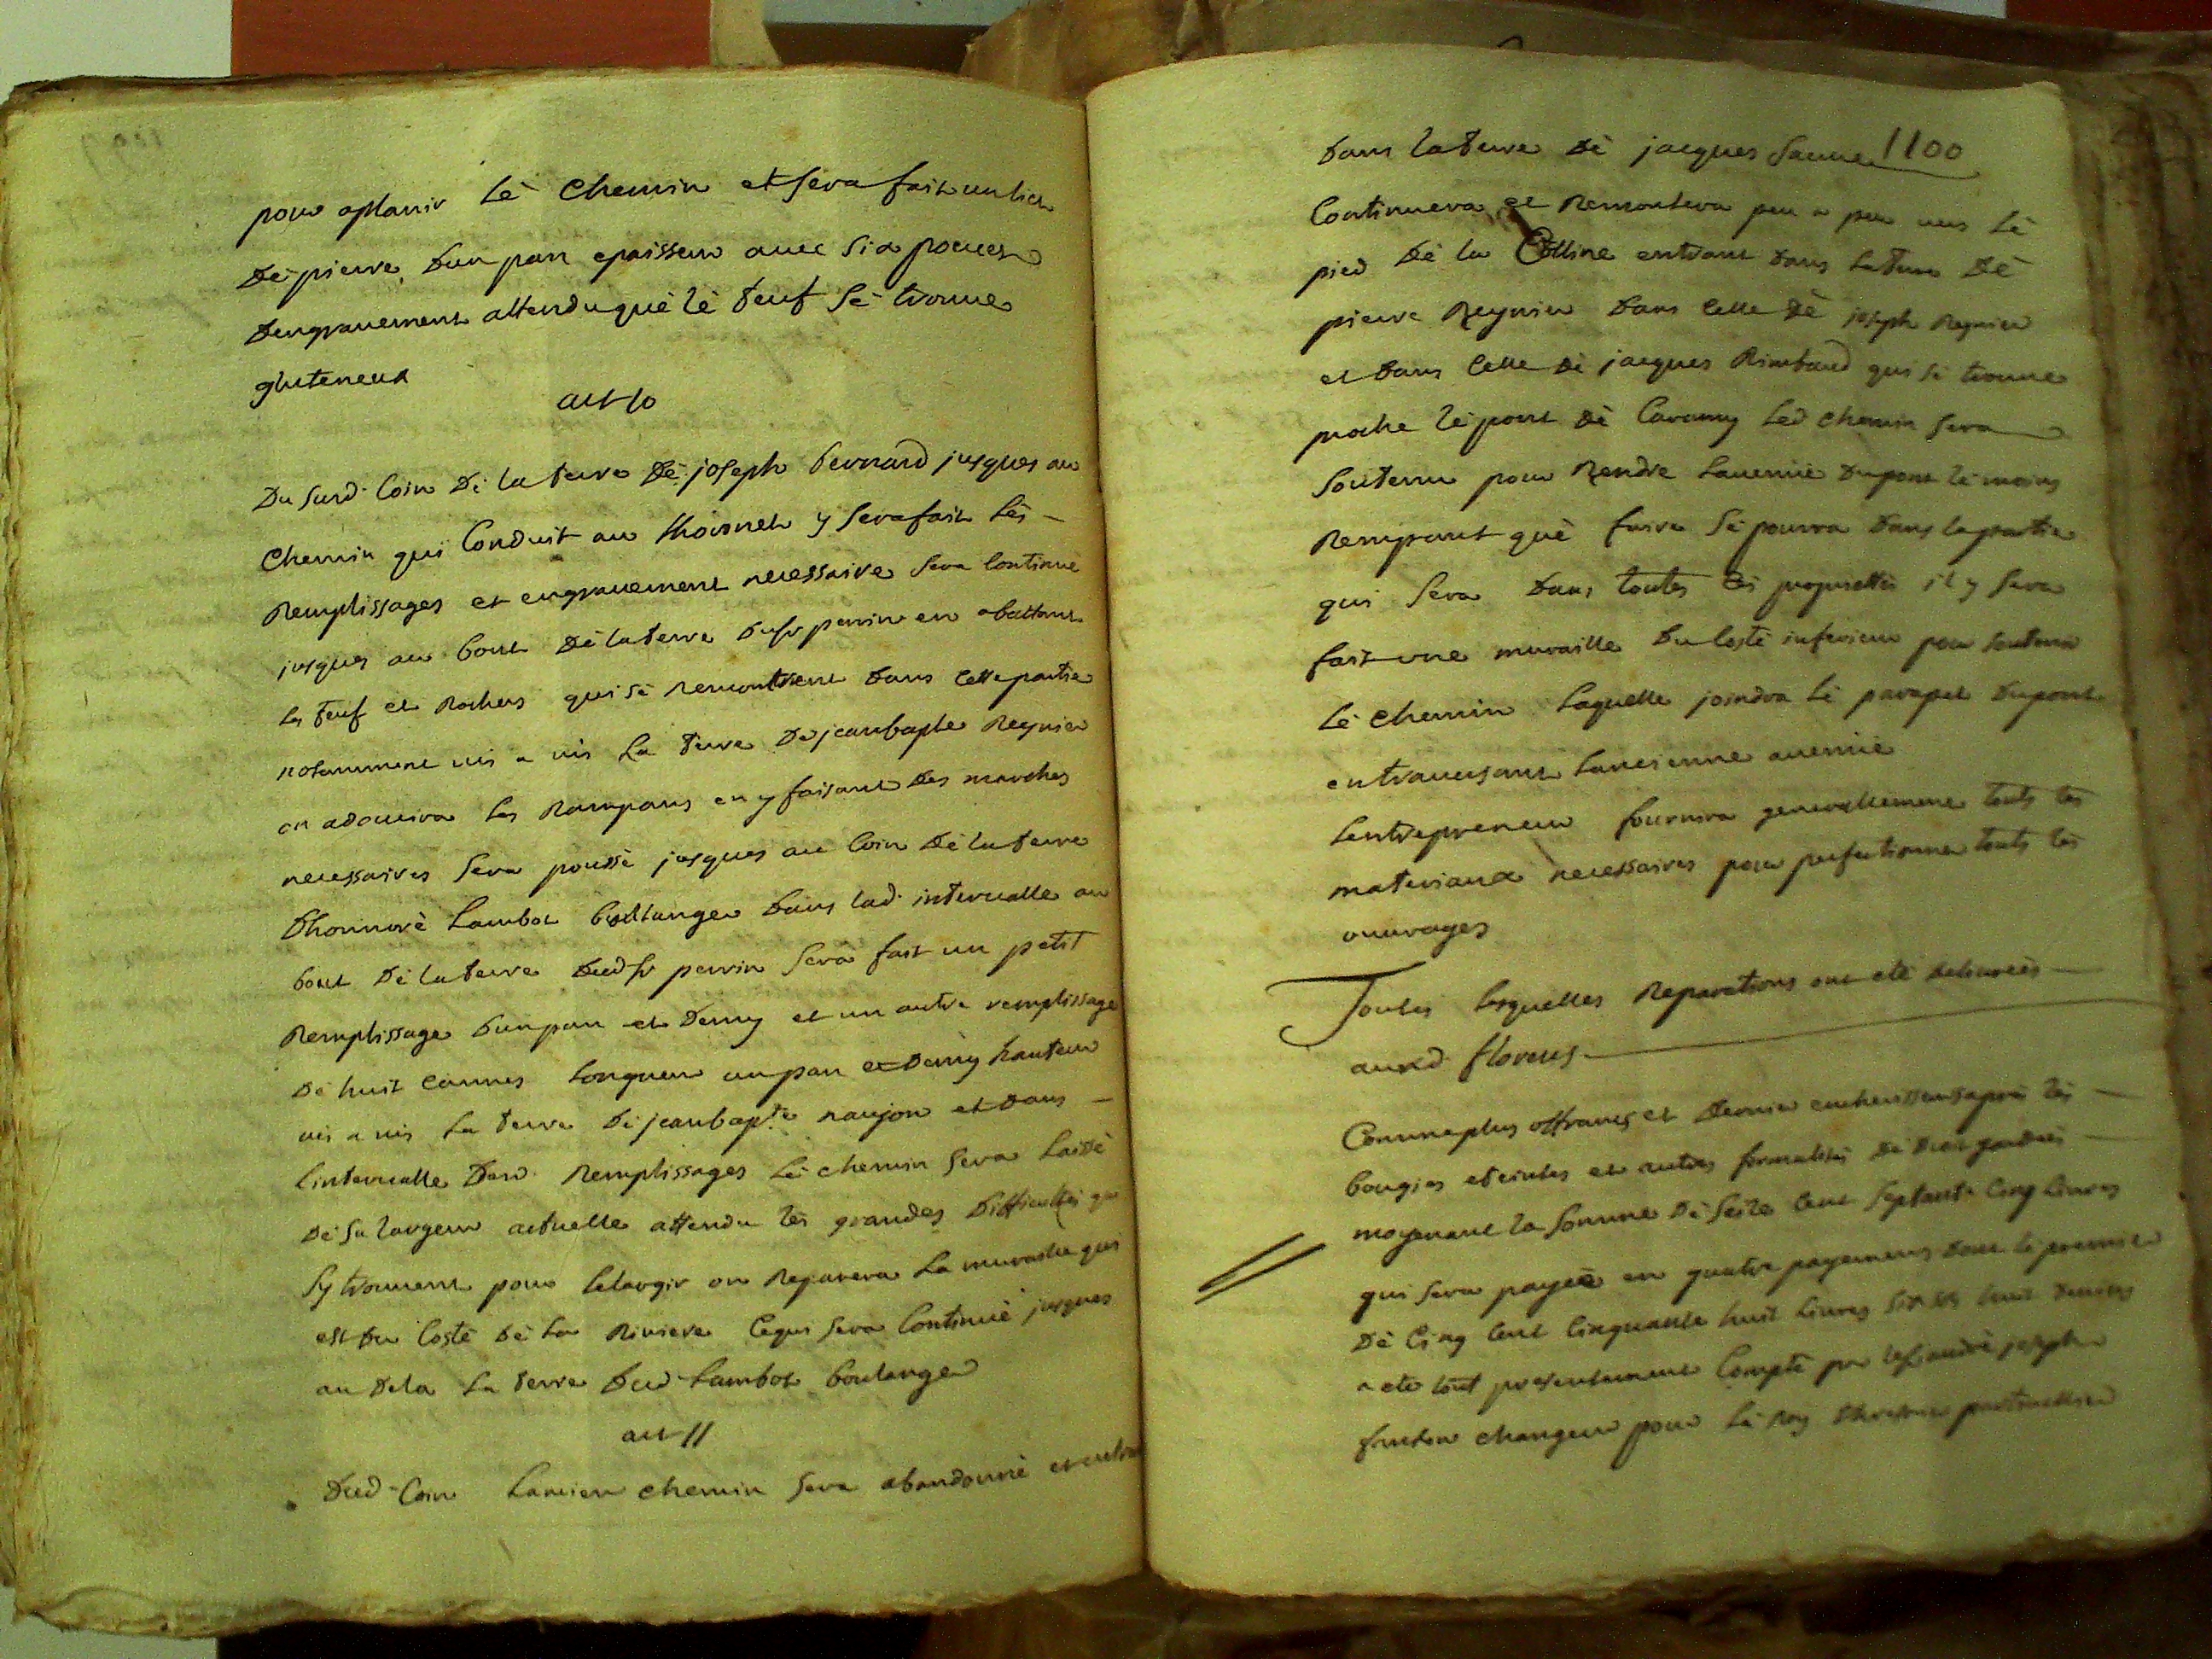 pour aplanir lè chemin et sera fait un lict
dè pierre d'un pan epaisseur avec six pouces
d'engravement attendu què lè teuf sè trouve
gluteneux
art 10
Du susd. Coin dè la terre dè joseph bernard jusques au
chemin qui Conduit au thoronet y sera fait lès
Remplissages et engravement necessaire sera Continué
jusques au bout dè la terre du sr perrin en abattant
les teuf et Rochers qui sè rencontrent dans cette partie
notamment vis a vis la terre de jeanbapte Reynier
on adoucira les Rampans en y faisant des marches
necessaires sera poussè jusques au Coin dè la terre
d'honnorè Lambot boulanger dans lad. intervalle au
bout dè la terre dud sr perrin sera fait un petit
Remplissage d'un pan et demy et un autre remplissage
dè huit cannes longueur un pan et demy hauteur
vis a vis la terre dè jeanbapte naujon et dans
l'intervalle desd. Remplissages lè chemin sera laissè
dè sa largeur actuelle attendu lès grandes difficultés qui
s'y trouvent pour l'elargir on Reparera la muraille qui
est du Costè dè la Riviere Ce qui sera Continuè jusques
au dela la terre dud Lambot boulanger
art 11
Dud Coin L'ancien chemin sera abandonnè et entrera
1100
dans la terre dè jacques Sauve
Continuera et Remontera peu a peu vers lè
pied dè la Colline entrant dans la terre dè
pierre Reynier dans Celle dè joseph Reynier
et dans Celle dè jacques Rimbaud qui sè trouve
proche lè pont dè Caramy led chemin sera
soutenu pour Rendre l'avenuë du pont lè moins
Rempant què faire sè pourra dans la partie
qui sera dans toutes les proprietés il y sera
fait une muraille du Costè inferieur pour soutenir
lè chemin laquelle joindra lè parapet du pont
en traversant l'ancienne avenuë
L'entrepreneur fournira generallement touts les
materiaux necessaires pour perfectionner touts les
ouvrages
Toutes lesquelles Reparations ont été delivrées
aud florens
Comme plus offrant et dernier encherisseur après les
bougies eteintes et autres formalités dè droit gardées
moyenant la somme dè seize Cent septante Cinq livres
qui sera payée en quatre payements dont lè premier
dè Cinq Cent Cinquante huit livres six sols huit deniers
a eté tout presentement Compté par le sr andrè joseph
changeur pour lè Roy thresorier particulier